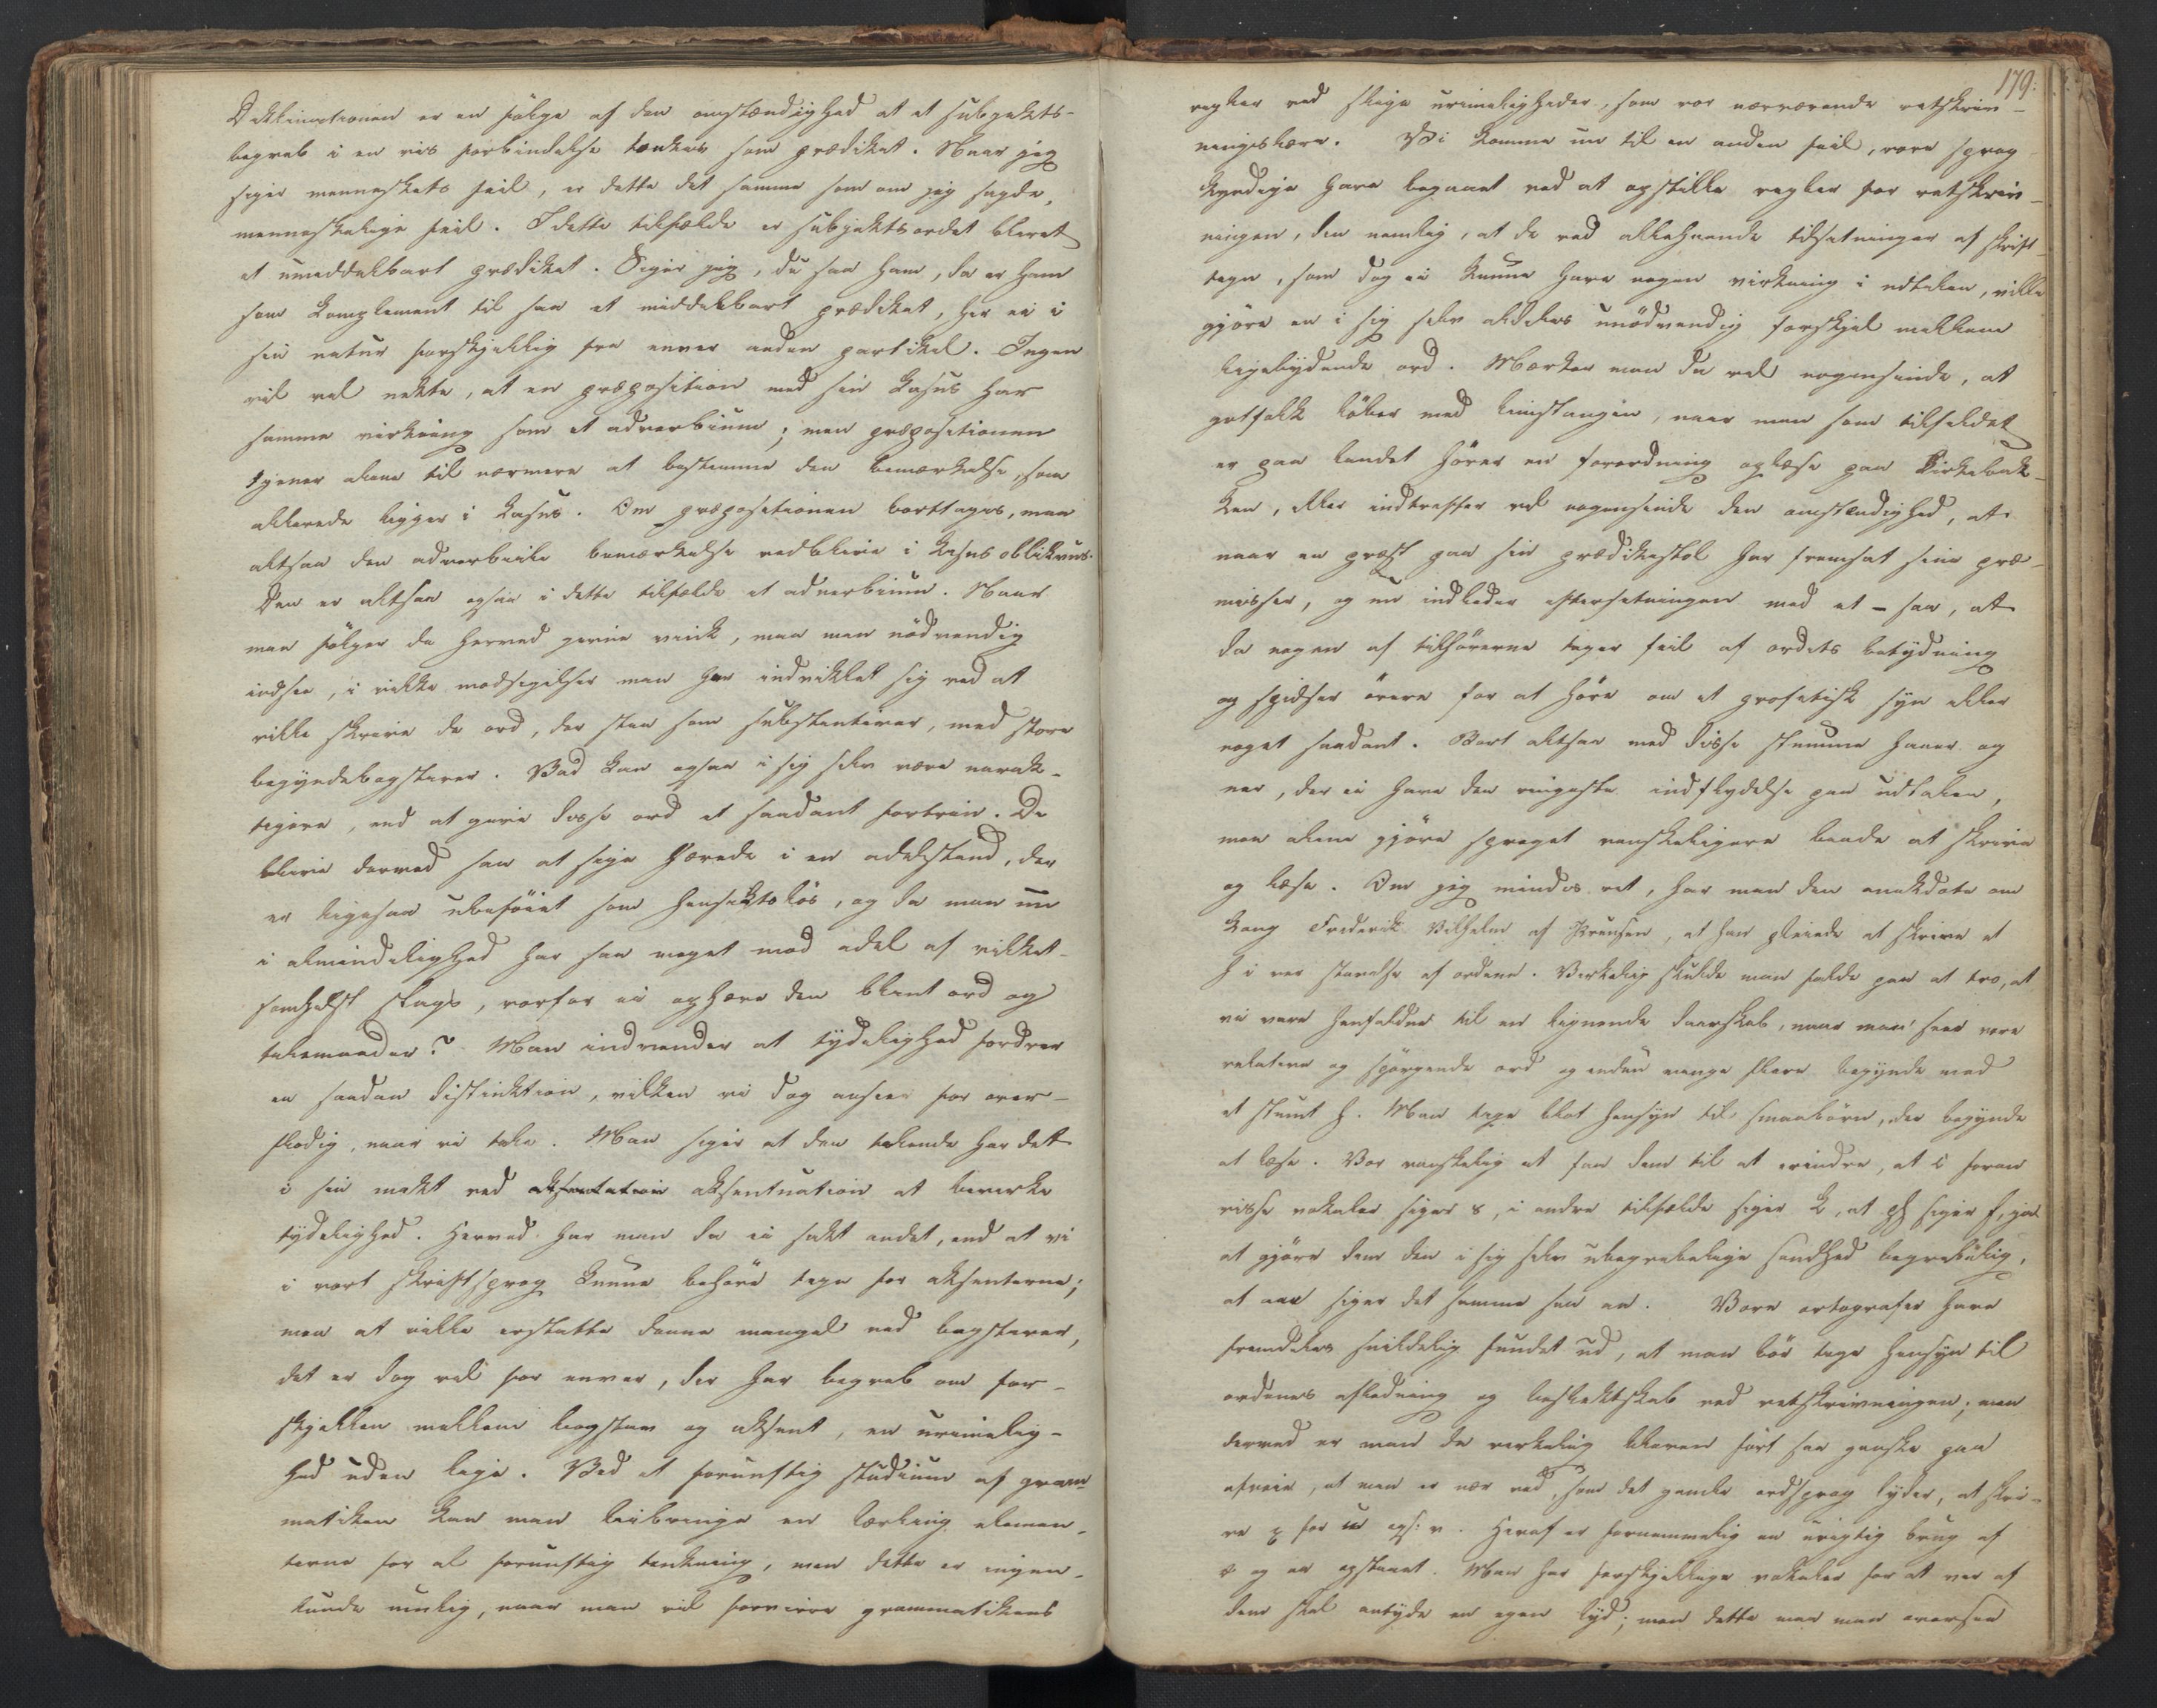 Deklinationen er en følge af den omstændighed at et subjekts-
begreb i en vis forbindelse tænkes som prædikat. Naar jeg
siger menneskets feil, er dette det samme som om jeg sagde,
menneskelige feil. I dette tilfælde er subjektsordet blevet
et umiddelbart prædikat. Siger jeg, du saa ham, da er ham
som komplement til saa et middelbart prædikat, her ei i
sin natur forskjellig fra enver anden partikel. Ingen
vil vel nekte, at en præposition med sin kasus har
samme virkning som et adverbium; men præpositionen
tjener alene til nærmere at bestemme den bemærkelse, som
allerede ligger i kasus. Om præpositionen borttages, maa
altsaa den adverbiele bemærkelse vedblive i kasus oblikvus.
Den er altsaa ogsaa i dette tilfælde et adverbium. Naar
man følger de herved givne vink, maa man nødvendig
indsee, i vilke modsigelser man har indviklet sig ved at
ville skrive de ord, der staa som substantiver, med store
begyndebogstaver. Vad kan ogsaa i sig selv være narak-
tigere, end at give disse ord et saadant fortrin. De
blive dermed saa at sige hævede i en adelsstand, der
er ligesaa ubeføiet som hensiktsløs, og da man nu
i almindelighed har saa meget mod adel af vilket-
somhelst slags, vorfor ei ophæve den blant ord og
talemaader? Man indvender at tydelighed fordrer
en saadan distinktion, vilken vi dog ansee for over-
flødig, naar vi tale. Man siger at den talende har det
i sin makt ved aksentuation at bevirke
tydelighed. Herved har man da ei sakt andet, end at vi
i vort skriftsprog kunne behøve tegn for aksenterne;
men at ville erstatte denne mangel ved bogstaver,
det er dog vel for enver, der har begreb om for-
skjellen mellem bogstav og aksent, en urimelig-
hed uden lige. Ved et fornuftig studium af gram-
matiken kan man bibringe en lærling elemen-
terne for al fornuftig tenkning, men dette er ingen-
lunde mulig, naar man vil forvirre grammatikens
179:
regler ved slige urimeligheder, som vor nærværende retskriv-
ningslære. Vi komme nu til en anden feil, vore sprog-
kyndige have begaaet ved at opstille regler for retskriv-
ningen, den nemlig, at de ved allehaande tilsetninger af skrift-
tegn, som dog ei kunne have nogen virkning i udtalen, ville
gjøre en i sig selv aldeles unødvendig forskjel mellem
ligelydende ord. Mærker man da vel nogensinde, at
gotfolk løber med limstangen, naar man som tilfeldet
er paa landet hører en forordning oplæse paa kirkebak-
ken, eller indtreffer vel nogensinde den omstændighed, at
naar en prest paa sin prædikestol har fremsat sine præ-
misser, og nu indleder eftersetningen med et – saa, at
da nogen af tilhørerne tager feil af ordets betydning
og spidser ørene for at høre om et profetisk syn eller
noget saadant. Bort altsaa med disse stumme haner og
ner, der ei have den ringeste indflydelse paa udtalen,
men alene gjøre sproget vanskeligere baade at skrive
og læse. Om jeg mindes ret, har man den anekdote om
kong Frederik Vilhelm af Preusen, at han pleiede at skrive et
h i ver stavelse af ordene. Virkelig skulde man falde paa at tro, at
vi vare henfaldne til en lignende daarskab, naar man seer vore
relative og spørgende ord og endnu mange flere begynde med
et stumt h. Man tage blot hensyn til smaabørn, der begynde
at læse. Vor vanskelig at faa dem til at erindre, at c foran
visse vokaler siger s, i andre tilfælde siger k, at ph siger f, ja
at gjøre dem den i sig selv ubegribelige sandhed begribelig,
at aae siger det samme som aa. Vore ortografer have
fremdeles sindelig fundet ud, at man bør tage hensyn til
ordenes afledning og beslektskab ved retskrivningen; men
derved er man da virkelig bleven ført saa ganske paa
afveie, at man er nær ved, som det gamle ordsprog lyder, at skri-
ve x for u eps: v. Heraf er fornemmelig en urigtig brug af
e og æ opstaaet. Man har forskjellige vokaler for at ver af
dem skal antyde en egen lyd; men dette maa man oversee